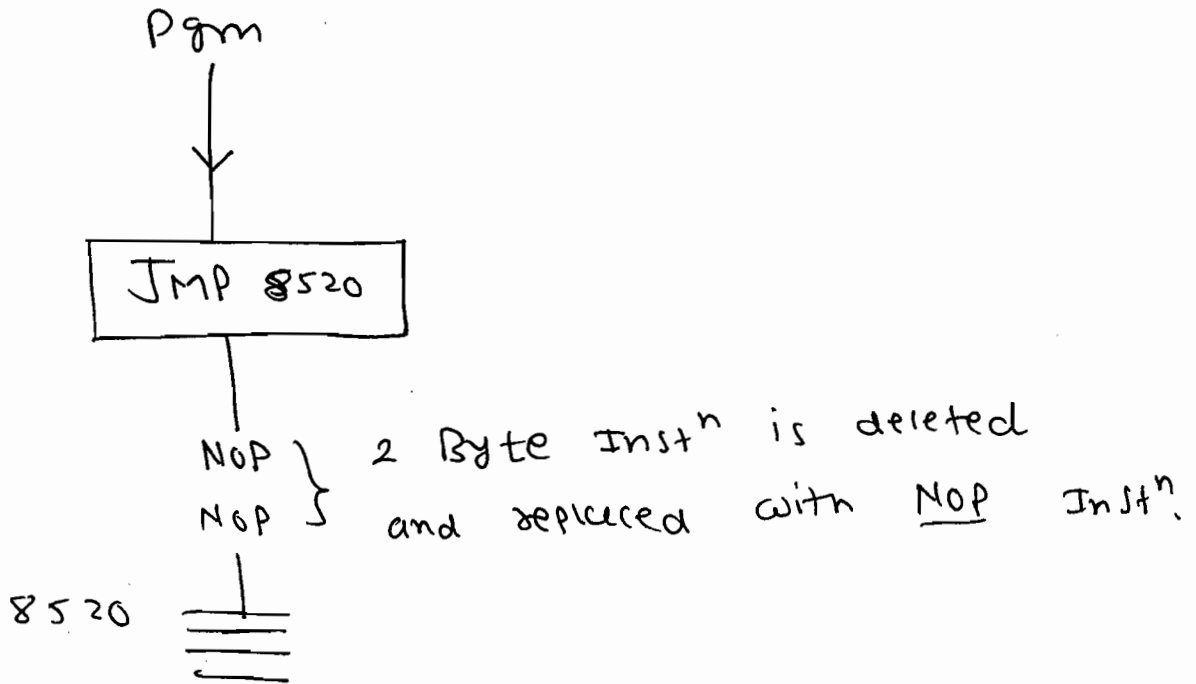 Pgm
JMP 8520
NOP
NOP
2 Byte Instⁿ is deleted
and replaced with NOP Instⁿ.
8520